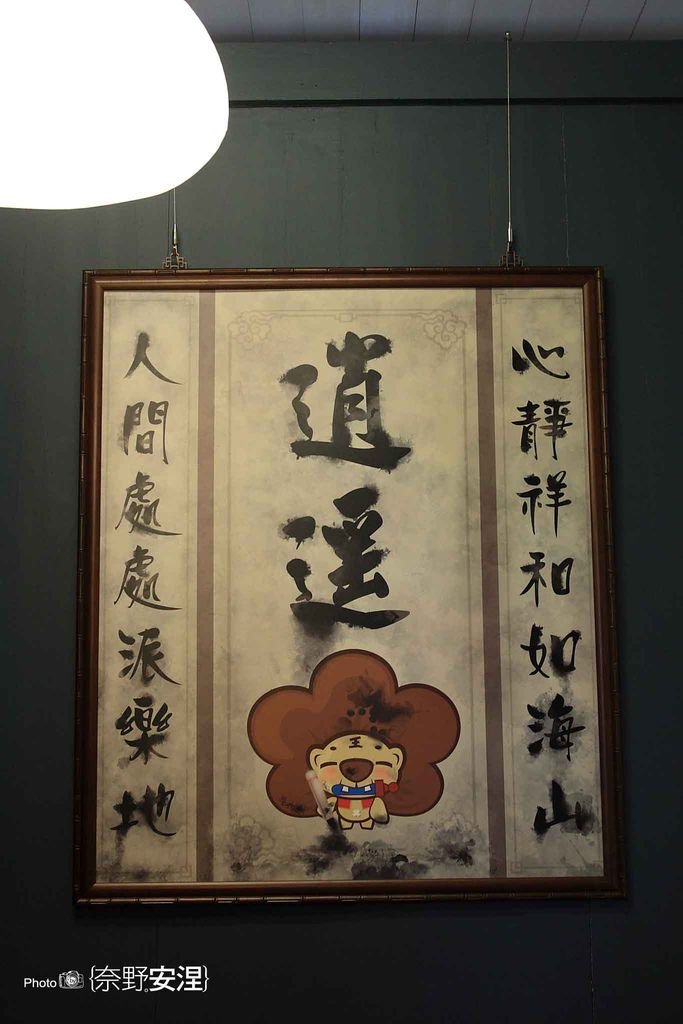 心靜祥和如海山
逍遥
人間處處派樂地
王
Photo {奈野。安涅}